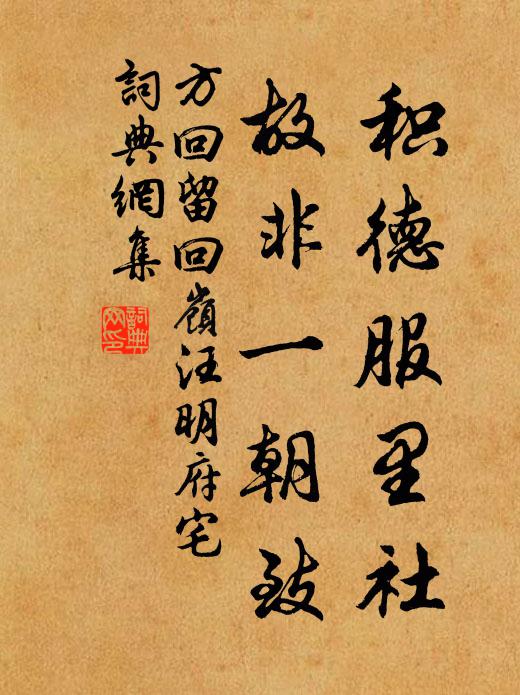 积德服里社
故非一朝致
方回留回嶺汪明府宅
詞典網集
詞典網印